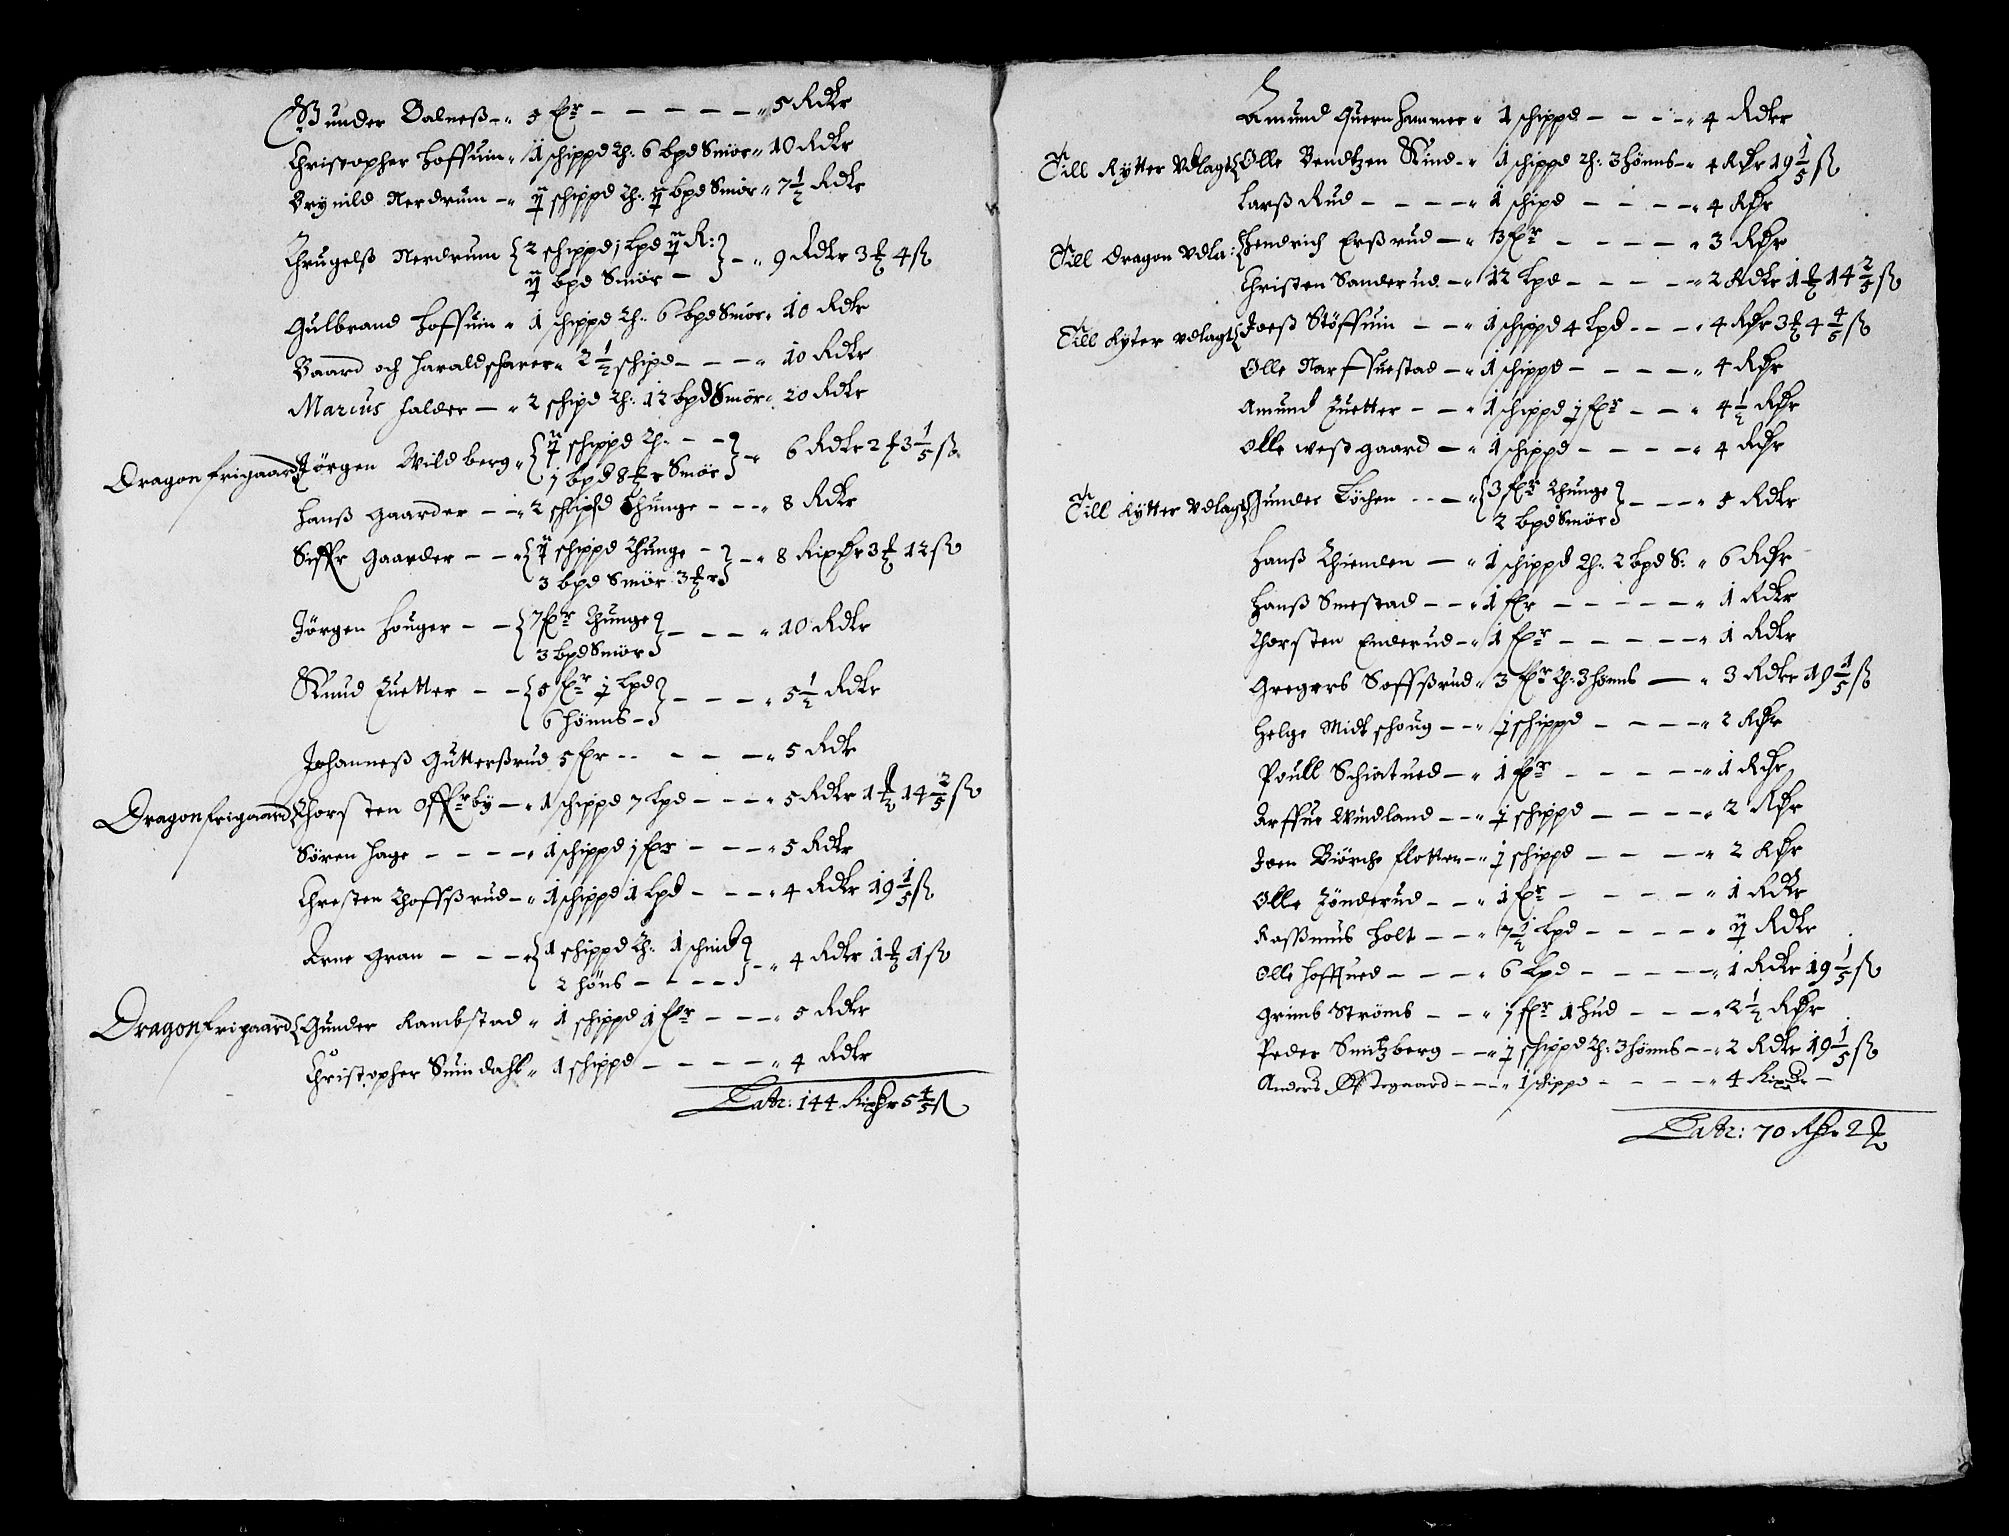 Gunder Dalneß – 5 Fr – – – – – 5 Rdlr
Christopher Hoffuin – 1 schippd Th: 6 bpd Smör – 10 Rdlr
Brynild Nerdrum – schippd Th: bpd Smör – 7½ Rdlr
Thrugelß Nerdrum { 2 schippd j Lpd R:
bpd Smör – } – 9 Rdlr 3 4 ß
Gulbrand Hoffuin – 1 schippd Th: 6 bpd Smör – 10 Rdlr
Baard och Harald scharer – 2½ schipd – – – 10 Rdlr
Marcus Falder – 2 schipd Th: 12 bpd Smör – 20 Rdlr
Dragon frigaard { Jörgen Wildberg { schippd Th: – –
1 bpd 8 Smör } – 6 Rdlr 2 3 1/5 ß
Hanß Gaarder – – 2 schipd Thunge – – – 8 Rdlr
Siffr Gaarder – – { schippd Thunge –
3 bpd Smör 3 } – 8 Rixdlr 3 12 ß
Jörgen Houger – – { 7 Fr Thunge
3 bpd Smör } – – – 10 Rdlr
Knud Zuetter – – { 5 Fr j Lpd
6 Hönns – } – – – 5½ Rdlr
Johanneß Gutterßrud 5 Fr – – – – 5 Rdlr
Dragon frigaard { Thorsten Offrby – 1 schippd 7 Lpd – – – 5 Rdlr 1 14 2/5 ß
Sören Hage – – – – 1 schippd j Fr – – – 5 Rdlr
Christen Thoffßrud – 1 schippd 1 Lpd – – – 4 Rdlr 19 1/5 ß
Arne Gran – – – { 1 schippd Th: 1 schind
2 Höns – – – – } – 4 Rdlr 1 1 ß
Dragon frigaard { Gunder Rambstad – 1 schippd 1 Fr – – – 5 Rdlr
Christopher Suindahl – 1 schippd – – – – 4 Rdlr
Latr: 144 Rixdlr 5 4/5 ß
Amund Quernhammer – 1 schippd – – – – 4 Rdlr
Till Rytter Vdlagt { Olle Bendtzen Rind – 1 schippd Th: 3 Hönns – 4 Rdr 19 1/5 ß
Larß Rud – – – – 1 schipd – – – – 4 Rdr
Till Dragon Vdla: { Hendrich Erßrud – 3 Fr – – – – 3 Rdr
Christen Sanderud – 12 Lpd – – – – 2 Rdlr 1 14 2/5 ß
Till Ryter vdlagt { Joeß Stöffuin – – 1 schippd 4 Lpd – – – 4 Rdr 3 4 4/5 ß
Olle Narffuestad – 1 schippd – – – – 4 Rdr
Amund Zuetter – – 1 schippd j Fr – – – 4½ Rdr
Olle Weßgaard – 1 schippd – – – – 4 Rdr
Till Rytter Vdlagt { Gunder Löchen – – { 3 Fr Thunge
2 bpd Smör } – – – 5 Rdlr
Hanß Thienden – 1 schippd Th: 2 bpd S: – 6 Rdr
Hanß Smestad – – 1 Fr – – – – – 1 Rdlr
Thorsten Enderud – 1 Fr – – – – – 1 Rdlr
Gregers Soffßrud – 3 Fr Th: 3 Hönns – 3 Rdlr 19 1/5 ß
Helge Midtschoug – – j schippd – – – – 2 Rdr
Poull Schiatued – – 1 Fr – – – – – 1 Rdr
Arffue Windland – – j schippd – – – – 2 Rdr
Joen Biörcheflotten – j schippd – – – – 2 Rdr
Olle Zönderud – – 1 Fr – – – – – 1 Rdlr
Raßmus Holt – – 7½ Lpd – – – – Rdlr
Olle Hoffued – – – – 6 Lpd – – – – 1 Rdlr 19 1/5 ß
Grims Ströms – – j Fr 1 Hud – – – 2½ Rdr
Peder Smitzberg – – j schippd Th: 3 Hönns – – 2 Rdlr 19 1/5 ß
Anders Østegaard – – – 1 schippd – – – – 4 Rixdr –
Latr: 70 Rdr 2